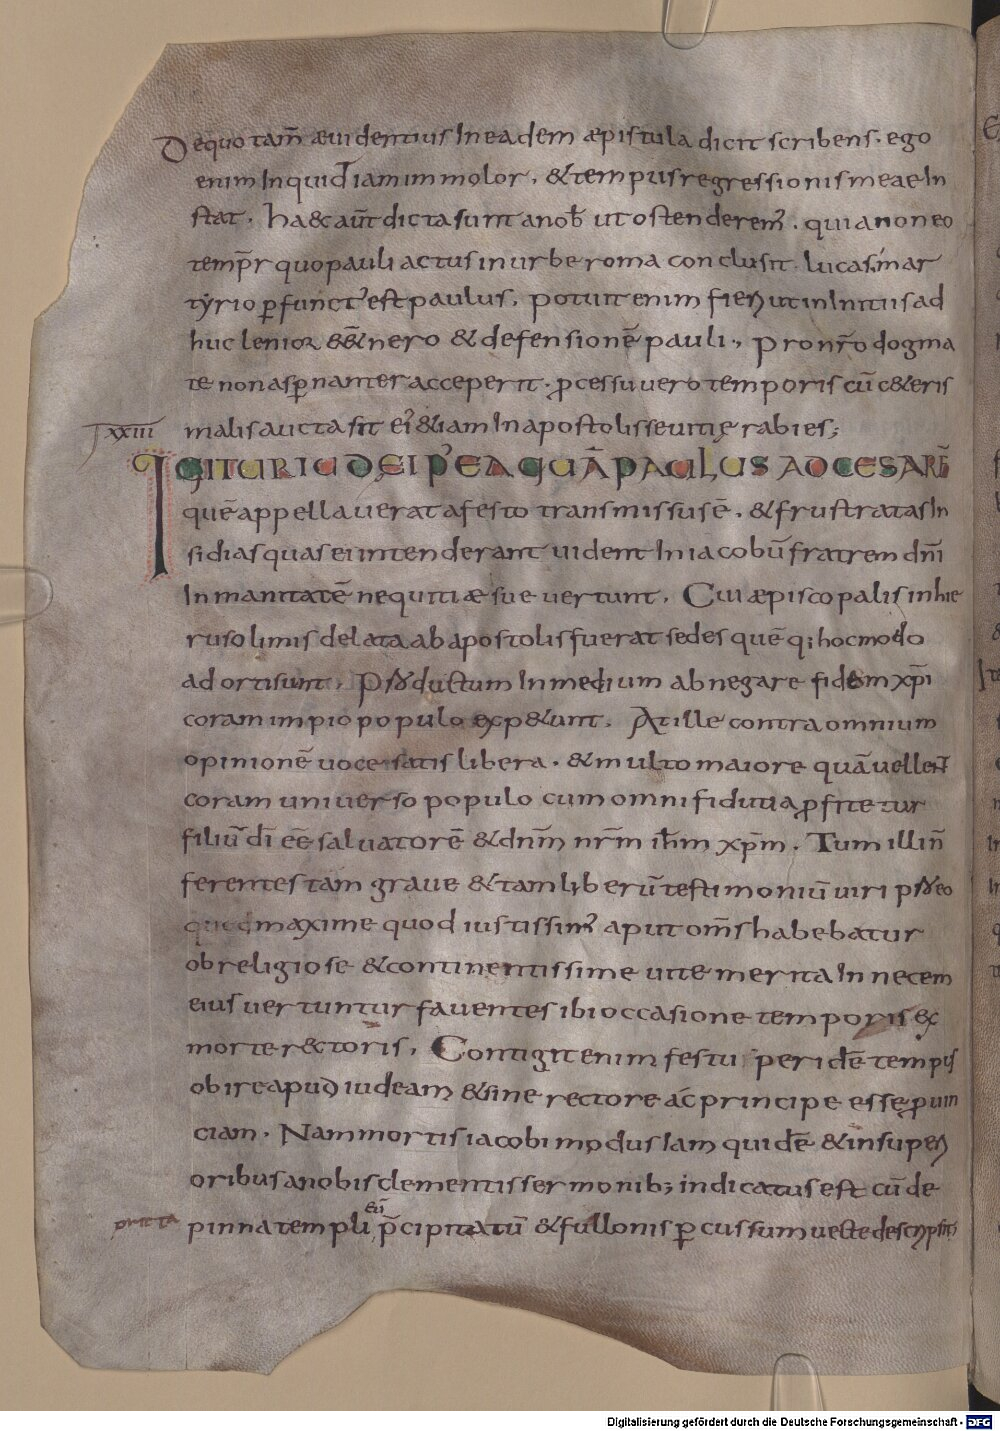 De quo tam̄ æuidentius In eadem æpistula dicit scribens. ego
enim Inquid iam immolor. & tempus regressionis meae In
stat. ha&c aut̄ dicta sunt a nob̄ ut ostenderem᾽. quia non eo
temp̄r quo pauli actus in urbe roma conclusit. lucas, mar
tyrio ꝑfunct᾽ est paulus, potuit enim fieri ut in Initiis ad
huc lenior ēē& nero & defensionē pauli, pro nr̄o dogma
te non asꝑnanter acceperit. ꝓcessu uero temporis cū c&eris
malis aucta sit ei᾽ &iam In apostolis seuitię rabies;
xxiii
IGITUR IUDEI P᾽EA QUĀ PAULUS AD CESARĒ
quē appellauerat a festo transmissus ē. & frustratas In
sidias quas ei intenderant uident In iacobū fratrem dn̄i
In manitatē nequitiæ sue uertunt. Cui æpiscopalis in hie
rusolimis delata ab apostolis fuerat sedes quē q; hoc modo
adorti sunt. Productum In medium abnegare fidem xp̄i
coram impio populo exp&unt. At ille contra omnium
opinionē uoce satis libera. & multo maiore quā uellent
coram uniuerso populo cum omni fidutia ꝓfitetur
filiū dī eē saluatorē & dn̄m nr̄m ih̄m xp̄m. Tum illi n̄
ferentes tam graue & tam liberū testimoniū uiri pro eo
quod maxime quod iustissim᾽ aput om̄s habebatur
ob religiose & continentissime uite merita In necem
eius uertuntur fauentes ibi occasione temporis ex
morte rectoris. Contigit enim festū per idē tempus
obire apud iudeam & sine rectore ac principe esse ꝓuin
ciam. Nam mortis iacobi modus Iam quidē & in superi
oribus a nobis clementis sermonib; indicatus est cū de
eū
pinna templi, p̄cipitatū & fullonis ꝑcussum uecte descripsit